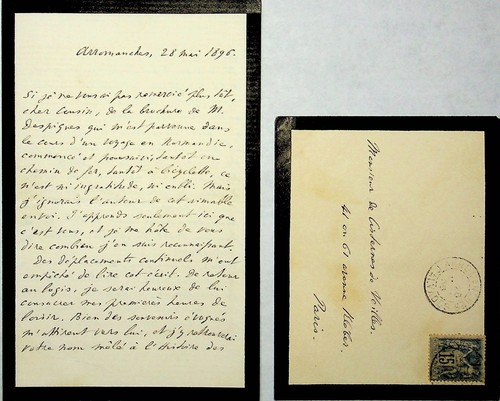 Arromanches, 28 mai 1896.
Si je ne vous ai pas remercié plus tôt,
cher Cousin, de la brochure de M.
Daspigues qui m'est parvenue dans
le cours d'un voyage en Normandie,
commencé et poursuivi, tantôt en
chemin de fer, tantôt à bicyclette, ce
n'est ni ingratitude, ni oubli. Mais
j'ignorais l'auteur de cet aimable
envoi. J'apprends seulement ici que
c'est vous, et je me hâte de vous
dire combien j'en suis reconnaissant.
Des déplacements continuels m'ont
empêché de lire cet écrit. De retour
au logis, je serai heureux de lui
consacrer mes premières heures de
loisir. Bien des souvenirs évoqués
m'attirent vers lui, et j'y retrouverai
votre nom mêlé à l'histoire des
Monsieur de Cisternes de Veilles.
41 ou 61 avenue Kleber.
Paris.
15